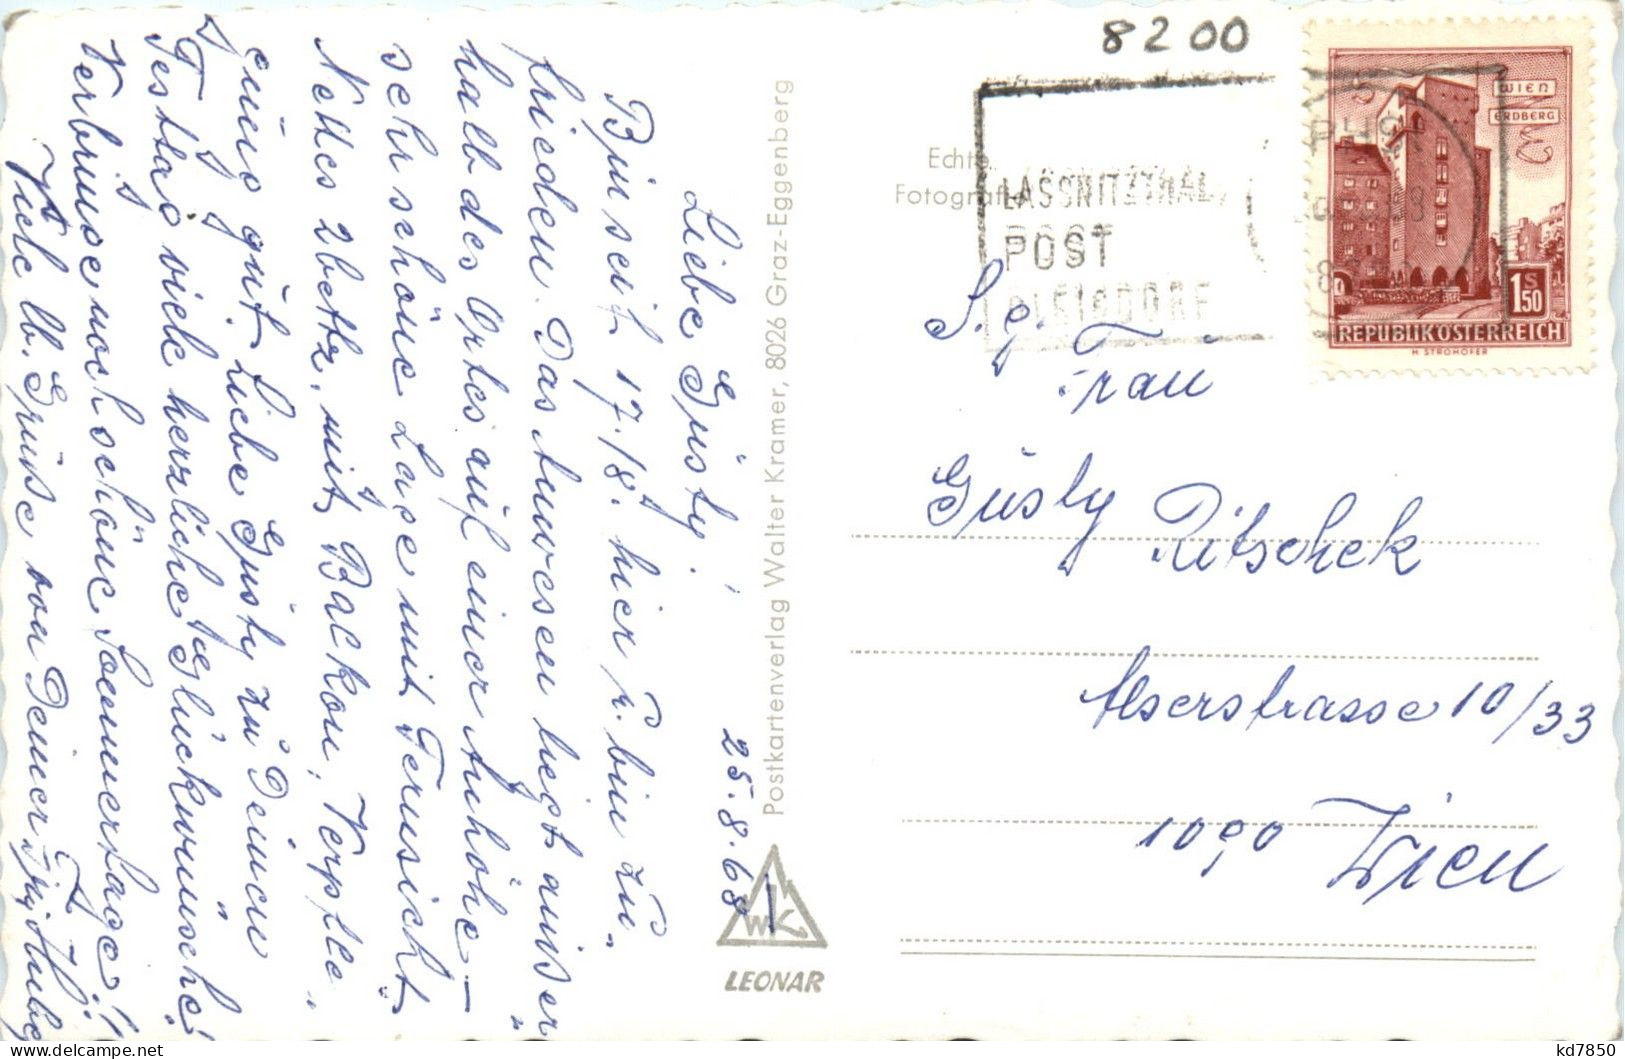 8200
Liebe Gusty!
25.8.68
Bin seit 17./18. hier u. bin zu-
frieden. Das Anwesen liegt außer-
halb des Ortes auf einer Anhöhe –
sehr schöne Lage mit Fernsicht.
Nettes 2bettz. mit Balkon, Verpfle-
gung gut. Liebe Gusty zu Deinem
Festtag viele herzliche Glückwünsche!
Verbringe noch schöne Sommertage!
Viele lb. Grüße von Deiner
Postkartenverlag Walter Kramer, 8026 Graz-Eggenberg
WK
LEONAR
Echte
Fotografie
LASSNITZTHAL
POST
GLEISDORF
WIEN
ERDBERG
1S50
REPUBLIK ÖSTERREICH
H. STROHOFER
S. g.
Frau
Gusty Ritschek
Alserstrasse 10/33
1090 Wien
kd7850